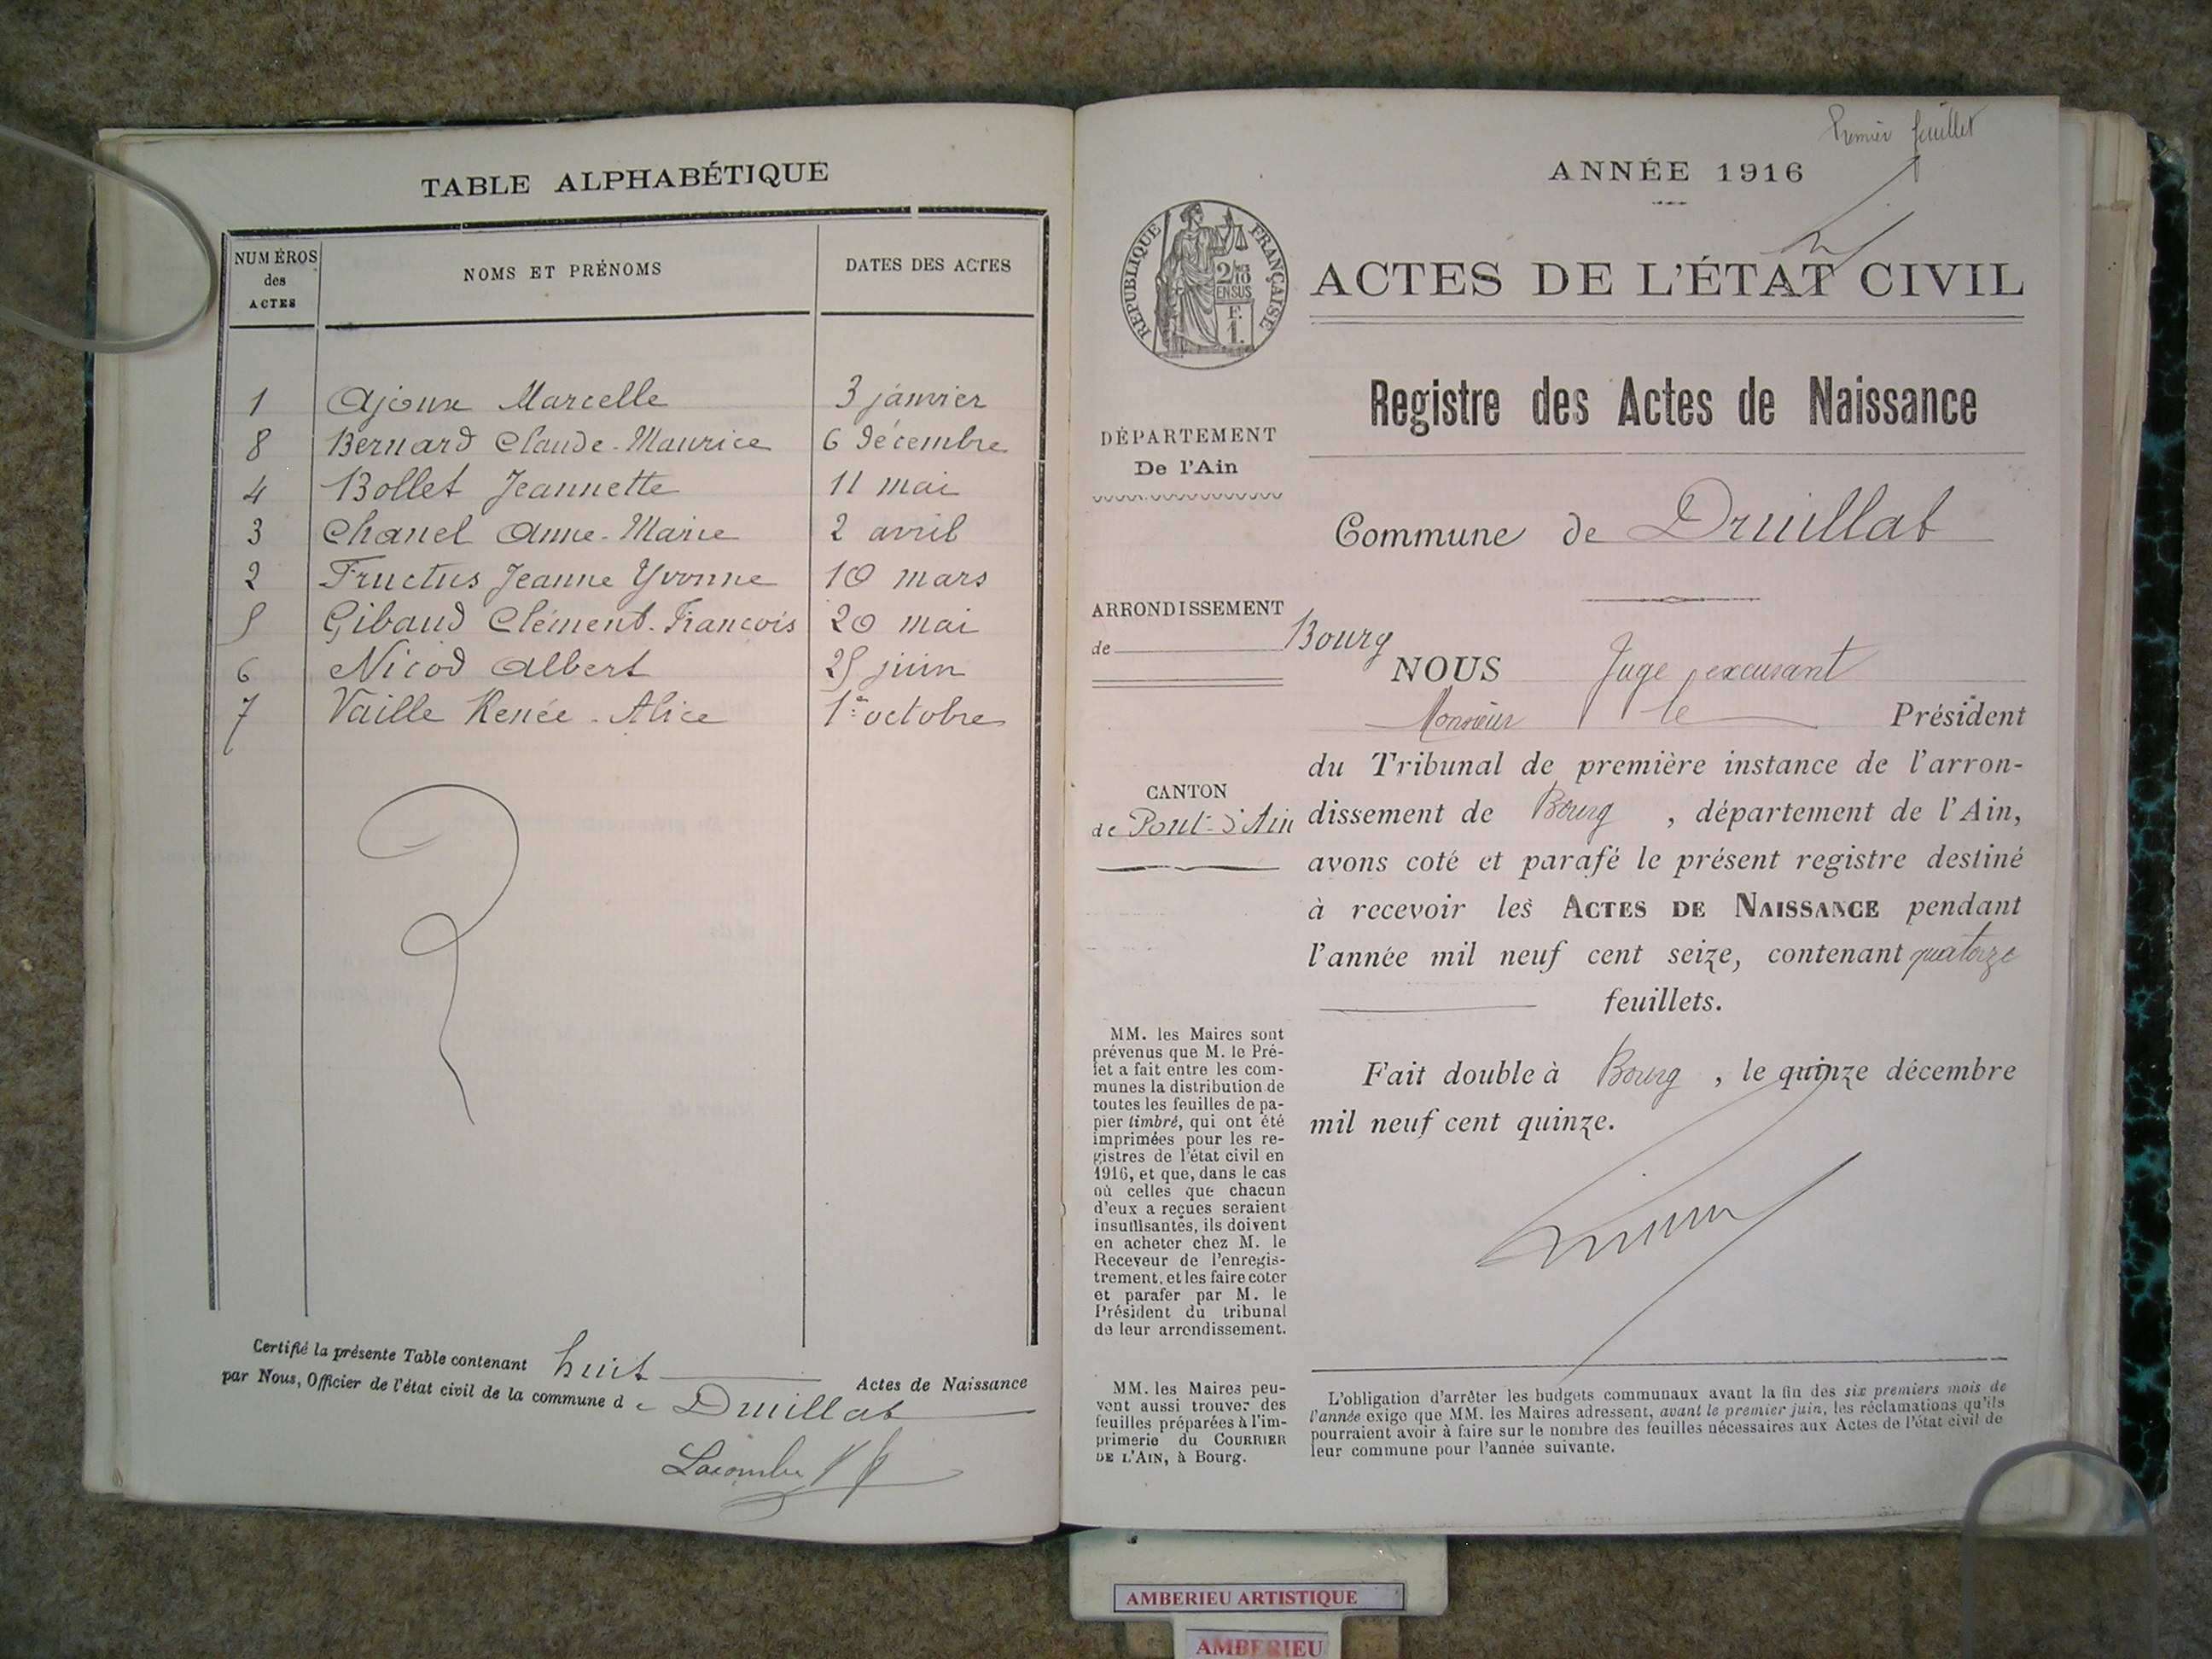 TABLE ALPHABÉTIQUE
NUMÉROS
des
ACTES
NOMS ET PRÉNOMS
DATES DES ACTES
1 Ajoux Marcelle 3 janvier
8 Bernard Claude-Maurice 6 décembre
4 Bollet Jeannette 11 mai
3 Chanel Anne-Marie 2 avril
2 Fructus Jeanne Yvonne 10 mars
5 Gibaud Clément-François 20 mai
6 Nicod Albert 25 juin
7 Vaille Renée-Alice 1er octobre
Certifié la présente Table contenant huit Actes de Naissance
par Nous, Officier de l'état civil de la commune de Druillat
Lacombe
Premier feuillet
ANNÉE 1916
RÉPUBLIQUE FRANÇAISE
2/10
EN SUS
F.
1.
ACTES DE L'ÉTAT CIVIL
Registre des Actes de Naissance
DÉPARTEMENT
De l'Ain
Commune de Druillat
ARRONDISSEMENT
de Bourg
CANTON
de Pont-d'Ain
NOUS Juge excusant
Monsieur le Président
du Tribunal de première instance de l'arron-
dissement de Bourg, département de l'Ain,
avons coté et parafé le présent registre destiné
à recevoir les ACTES DE NAISSANCE pendant
l'année mil neuf cent seize, contenant quatorze
feuillets.
Fait double à Bourg, le quinze décembre
mil neuf cent quinze.
MM. les Maires sont
prévenus que M. le Pré-
fet a fait entre les com-
munes la distribution de
toutes les feuilles de pa-
pier timbré, qui ont été
imprimées pour les re-
gistres de l'état civil en
1916, et que, dans le cas
où celles que chacun
d'eux a reçues seraient
insuffisantes, ils doivent
en acheter chez M. le
Receveur de l'enregis-
trement, et les faire coter
et parafer par M. le
Président du tribunal
de leur arrondissement.
MM. les Maires peu-
vent aussi trouver des
feuilles préparées à l'im-
primerie du COURRIER
DE L'AIN, à Bourg.
L'obligation d'arrêter les budgets communaux avant la fin des six premiers mois de
l'année exige que MM. les Maires adressent, avant le premier juin, les réclamations qu'ils
pourraient avoir à faire sur le nombre des feuilles nécessaires aux Actes de l'état civil de
leur commune pour l'année suivante.
AMBERIEU ARTISTIQUE
AMBERIEU